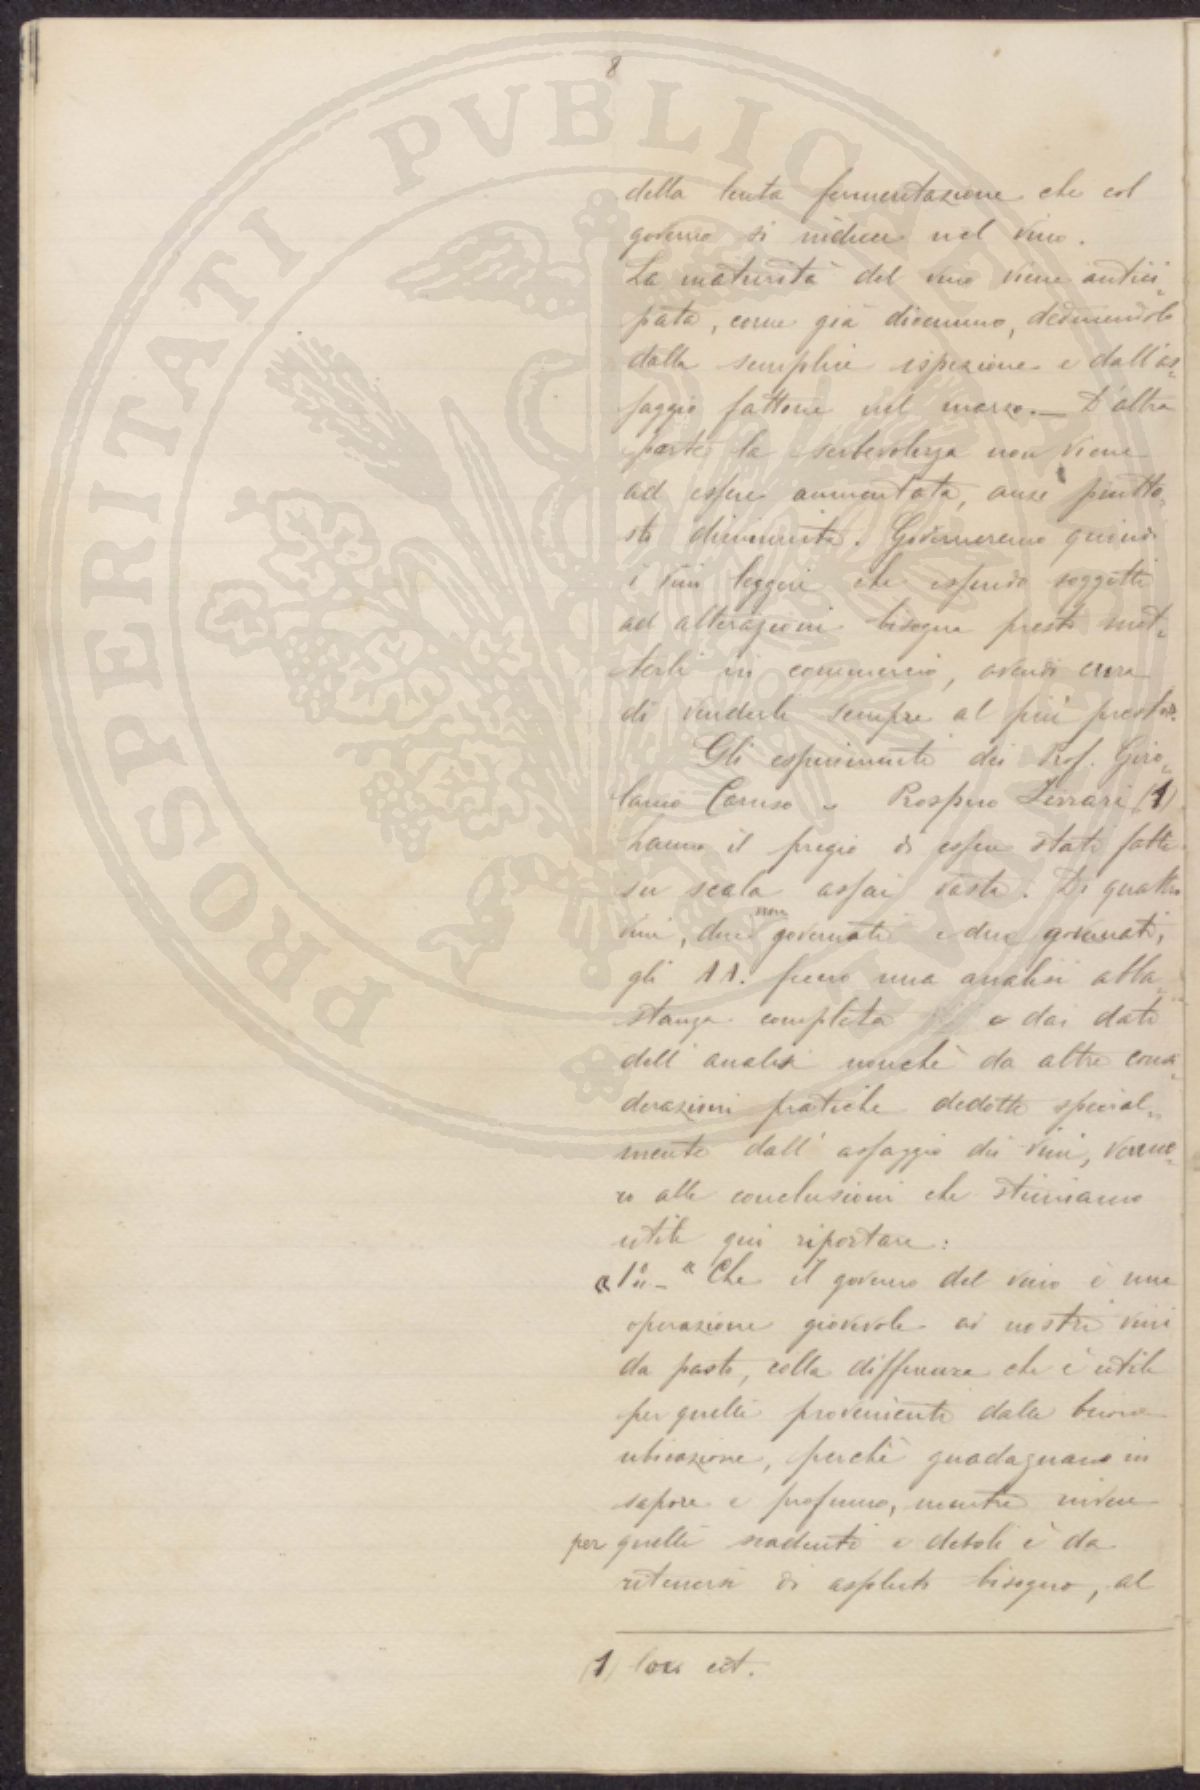 8
della lenta fermentazione che col
governo si induce nel vino.
La maturità del vino viene antici=
pata, come già dicemmo, deducendolo
dalla semplice ispezione e dall'as=
saggio fattone nel marzo. — D'altra
parte la serbevolezza non viene
ad essere aumentata, anzi piutto=
sto diminuita. Governeremo quindi
i vini leggeri che essendo soggetti
ad alterazioni bisogna presto met=
terli in commercio, avendo cura
di venderli sempre al più presto.
Gli esperimenti dei Prof. Giro=
lamo Caruso e Prospero Ferrari (1)
hanno il pregio di esser stati fatti
su scala assai vasta. Di quattro
vini, due non governati e due governati,
gli AA. fecero una analisi abba=
stanza completa e dai dati
dell'analisi nonchè da altre consi=
derazioni pratiche dedotte special=
mente dall'assaggio dei vini, venne=
ro alle conclusioni che stimiamo
utile qui riportare:
"1º - "Che il governo del vino è una
operazione giovevole ai nostri vini
da pasto, colla differenza che è utile
per quelli provenienti dalla buona
ubicazione, perchè guadagnano in
sapore e profumo, mentre invece
per quelli scadenti e deboli è da
ritenersi di assoluto bisogno, al
(1) loco cit.
PROSPERITATI PVBLICAE